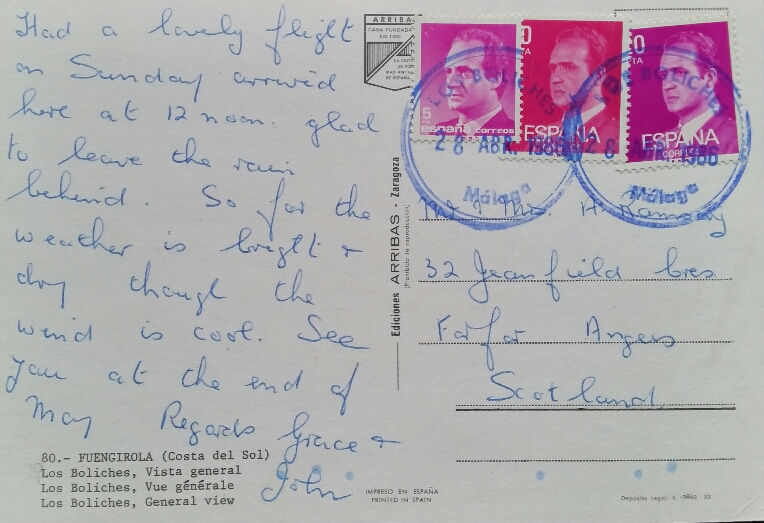 Had a lovely flight
on Sunday arrived
here at 12 noon. glad
to leave the rain
behind. So far the
weather is bright &
dry though the
wind is cool. See
you at the end of
May Regards Grace &
John
80.- FUENGIROLA (Costa del Sol)
Los Boliches, Vista general
Los Boliches, Vue générale
Los Boliches, General view
ARRIBAS
CASA FUNDADA
MAS ANTIGUA
DE ESPAÑA
Ediciones ARRIBAS - Zaragoza
(Prohibida la reproducción)
IMPRESO EN ESPAÑA
PRINTED IN SPAIN
5
españa correos
ESPAÑA
ESPAÑA
CORREOS
LOS BOLICHES
28 ABR. 1986
Málaga
LOS BOLICHES
28 ABR. 1986
Málaga
Mr & Mrs. H. Ramsay
32 Jeanfield Cres
Forfar Angus
Scotland
Depósito Legal